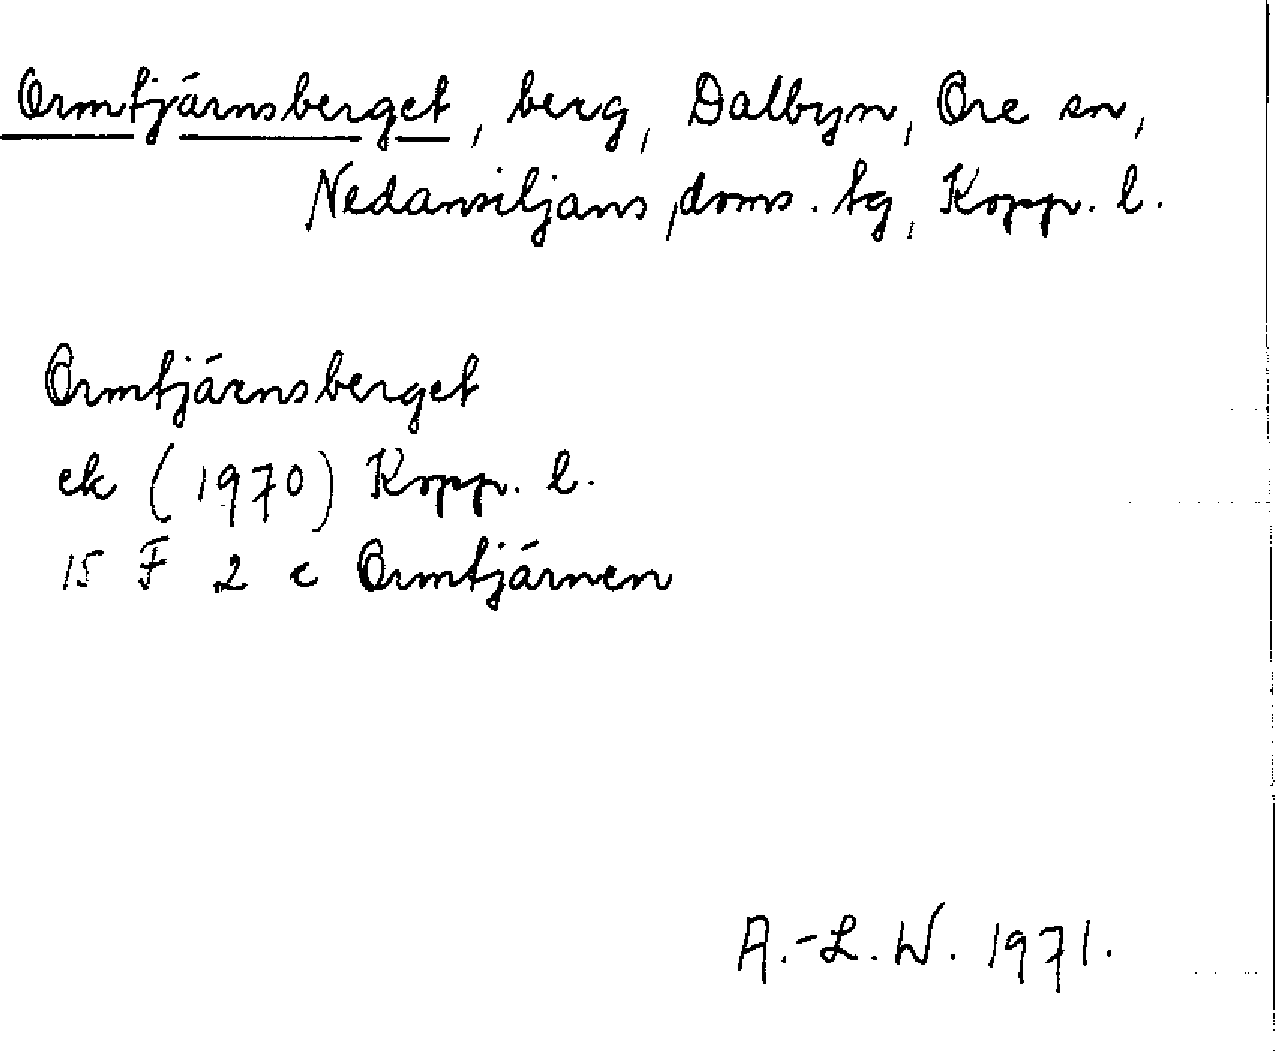 Ormtjärnsberget, berg, Dalbyn, Ore sn,
Nedansiljans doms. tg, Kopp. l.
Ormtjärnsberget
ek (1970) Kopp. l.
15 F 2 c Ormtjärnen
A.-L.W. 1971.